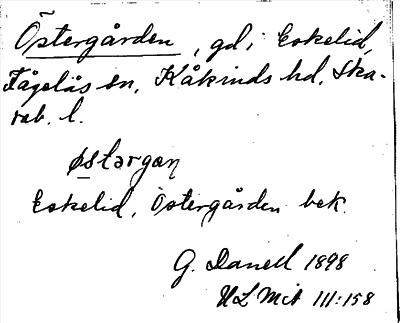 Östergården, gd i Eskelid,
Fågelås sn, Kåkinds hd, Ska-
rab. l.
østərgaɳ
Eskelid, Östergården bek.
G. Danell 1898
ULMit III:158